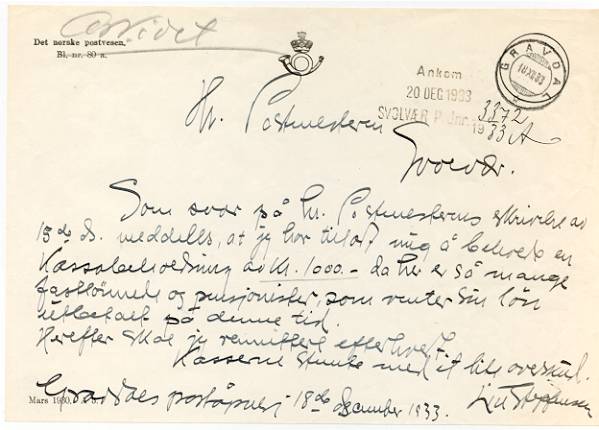 Arkivet
Det norske postvesen.
Bl. nr. 80 a.
GRAVDAL
18 XII 33
Ankom
20 DEC 1933
SVOLVÆR P. Jnr. 3372
1933 A
Hr. Postmesteren
Svolvær.
Som svar på hr. Postmesterens skrivelse av
15de ds. meddeles, at jeg har tillatt mig å beholde en
Kassabeholdning av kr. 1000.- da her er så mange
fastlønnede og pensjonister, som venter sin løn
utbetalt på denne tid.
Herefter skal jeg remittere efterhvert.
Kasserne stemte med et lite overskud.
Gravdal poståpneri 18de desember 1933.
Mars 1930.